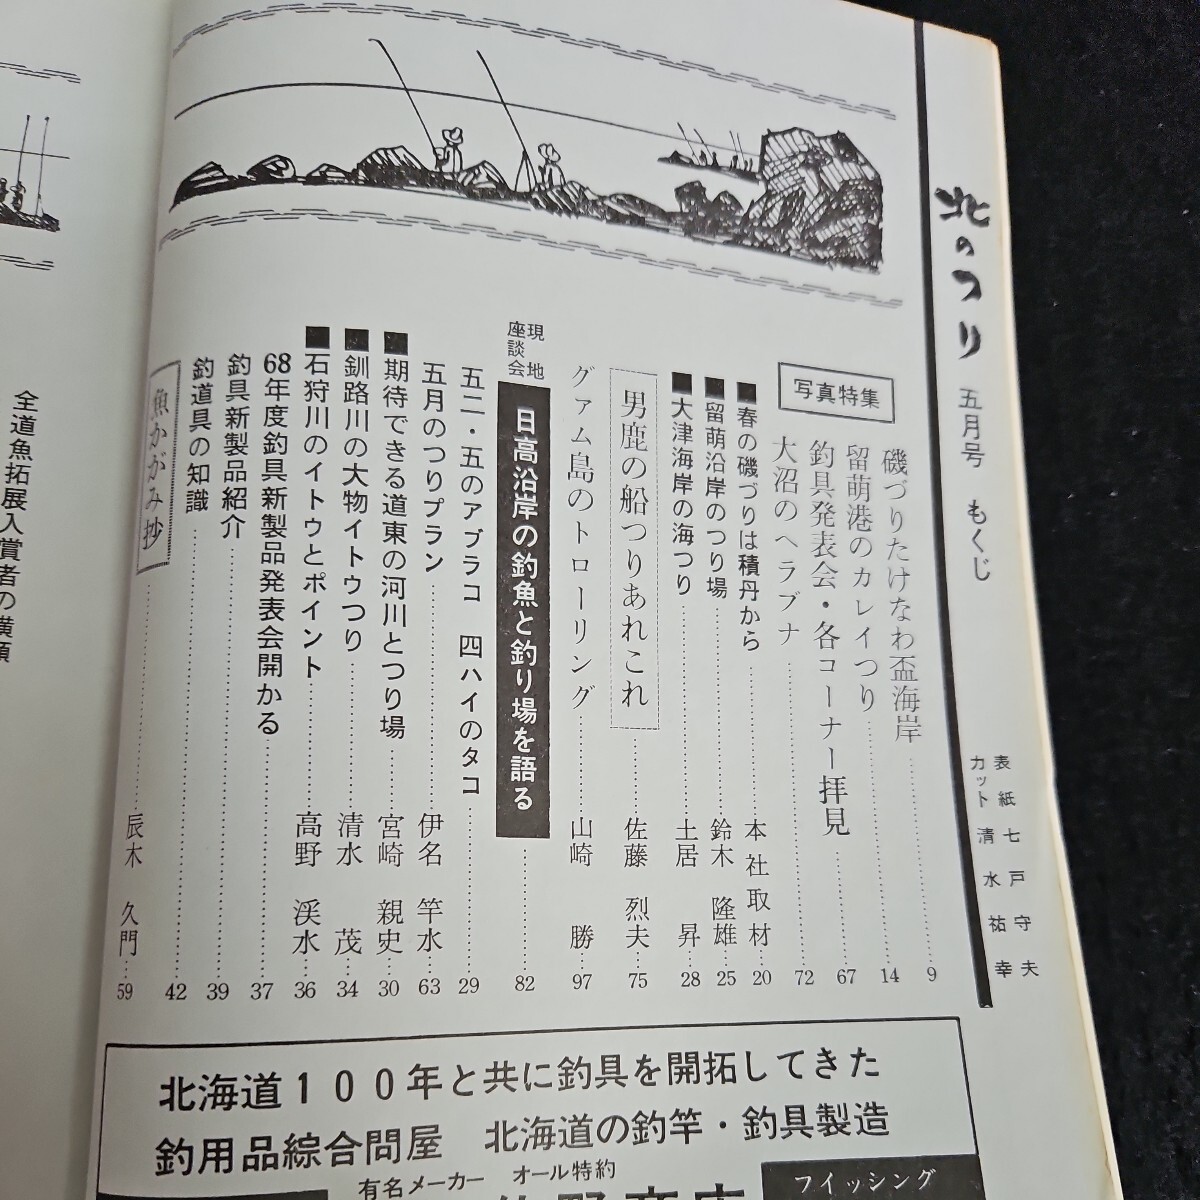 北のつり 五月号 もくじ
表紙 七戸守夫
カット 清水祐幸
写真特集
磯づりたけなわ盃海岸 9
留萌港のカレイつり 14
釣具発表会・各コーナー拝見 67
大沼のヘラブナ 72
■春の磯づりは積丹から 本社取材 20
■留萌沿岸のつり場 鈴木隆雄 25
■大津海岸の海つり 土居昇 28
男鹿の船つりあれこれ 佐藤烈夫 75
グァム島のトローリング 山崎勝 97
現地座談会 日高沿岸の釣魚と釣り場を語る 82
五二・五のアブラコ 四ハイのタコ 29
五月のつりプラン 伊名竿水 63
■期待できる道東の河川とつり場 宮崎親史 30
■釧路川の大物イトウつり 清水茂 34
■石狩川のイトウとポイント 高野渓水 36
68年度釣具新製品発表会開かる 37
釣具新製品紹介 39
釣道具の知識 42
魚かがみ抄 辰木久門 59
全道魚拓展入賞者の横顔
北海道100年と共に釣具を開拓してきた
釣用品綜合問屋 北海道の釣竿・釣具製造
有名メーカー オール特約
フイッシング